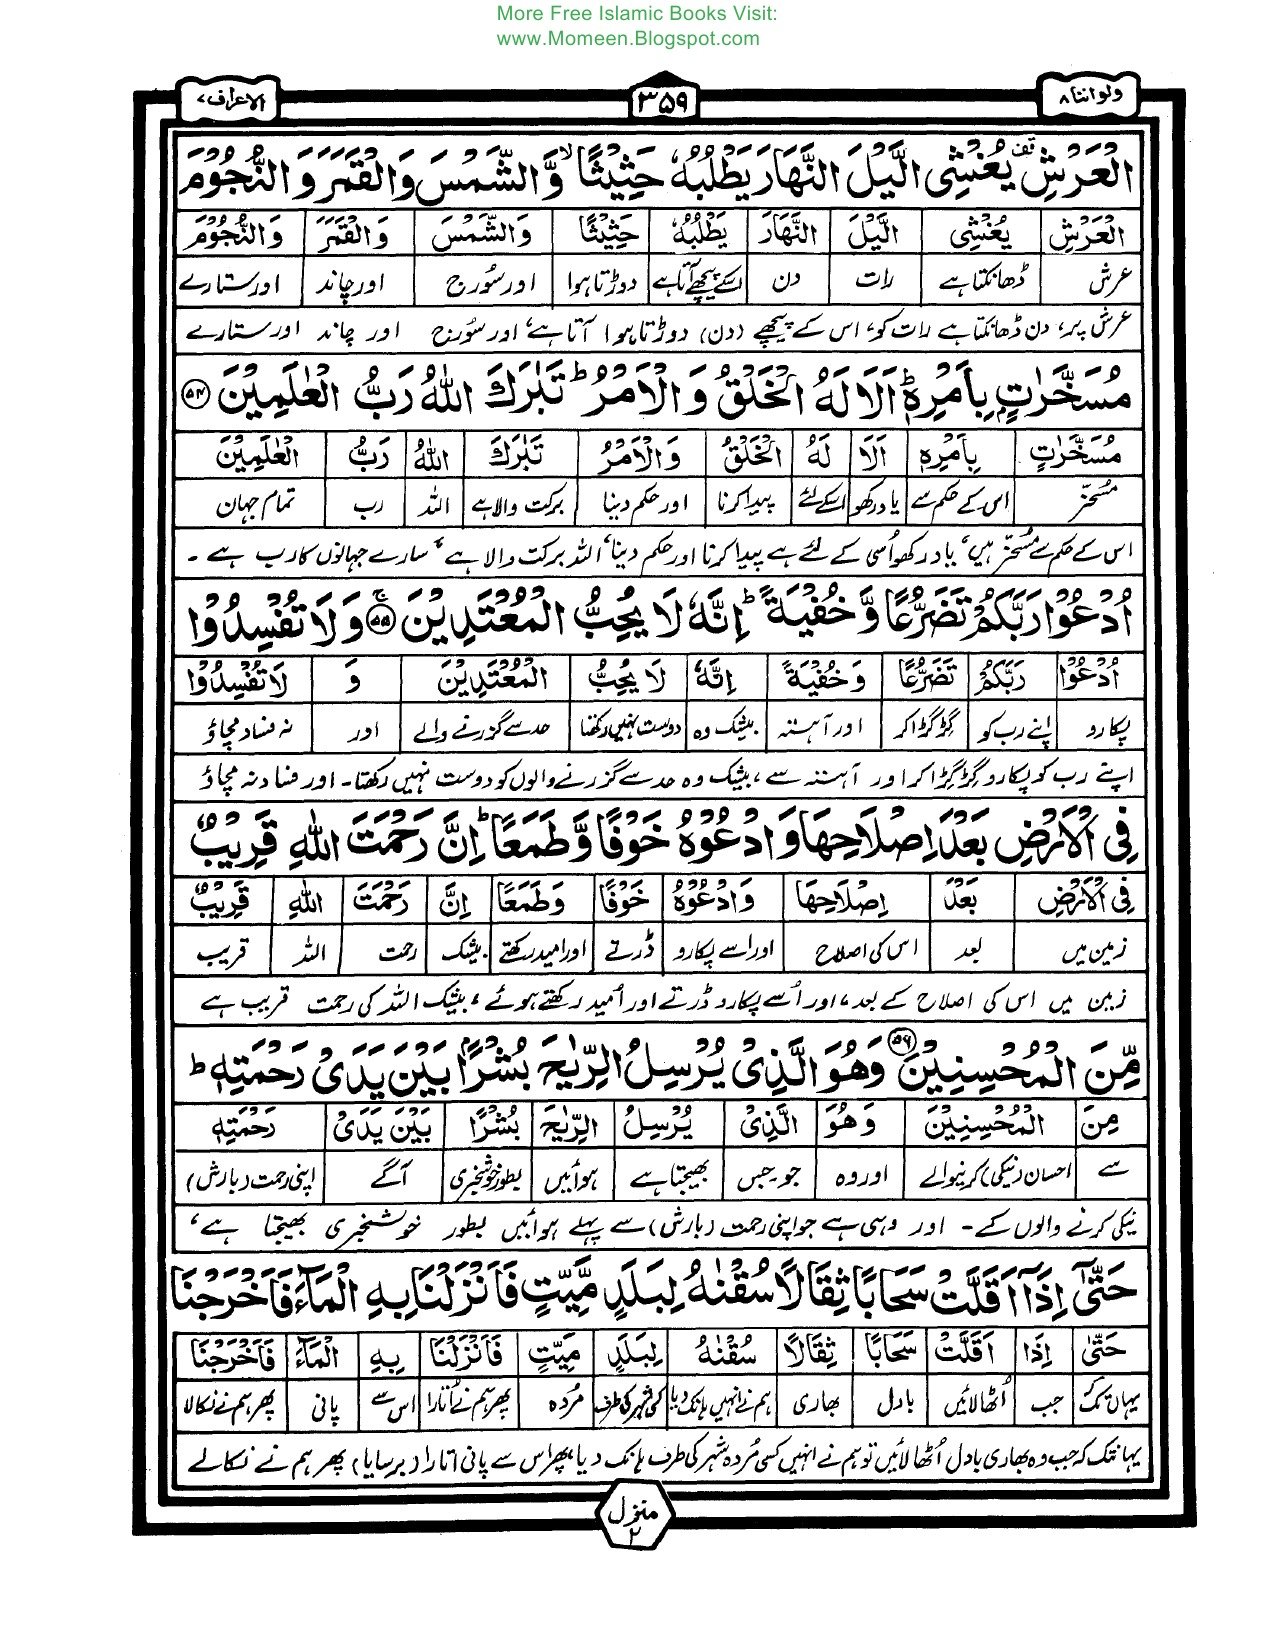 More Free Islamic Books Visit:
www.Momeen.Blogspot.com
ولواننا ۸
۳۵۹
الاعراف ۷
الْعَرْشِ ۫ یُغْشِی الَّیْلَ النَّهَارَ یَطْلُبُهٗ حَثِیْثًا ۙ وَّالشَّمْسَ وَالْقَمَرَ وَالنُّجُوْمَ
الْعَرْشِ یُغْشِی الَّیْلَ النَّهَارَ یَطْلُبُهٗ حَثِیْثًا وَّالشَّمْسَ وَالْقَمَرَ وَالنُّجُوْمَ
عرش ڈھانکتا ہے رات دن اسکے پیچھے آتا ہے دوڑتا ہوا اور سُورج اور چاند اور ستارے
عرش پر، دن ڈھانکتا ہے رات کو، اس کے پیچھے (دن) دوڑتا ہوا آتا ہے، اور سُورج اور چاند اور ستارے
مُسَخَّرٰتٍۭ بِاَمْرِهٖ ؕ اَلَا لَهُ الْخَلْقُ وَالْاَمْرُ ؕ تَبٰرَكَ اللّٰهُ رَبُّ الْعٰلَمِیْنَ ۵۴
مُسَخَّرٰتٍ بِاَمْرِهٖ اَلَا لَهُ الْخَلْقُ وَالْاَمْرُ تَبٰرَكَ اللّٰهُ رَبُّ الْعٰلَمِیْنَ
مسخر اس کے حکم سے یاد رکھو اسکے لئے پیدا کرنا اور حکم دینا برکت والا ہے اللہ رب تمام جہان
اس کے حکم سے مسخر ہیں، یاد رکھو اُسی کے لئے ہے پیدا کرنا اور حکم دینا، اللہ برکت والا ہے، سارے جہانوں کا رب ہے ۔
اُدْعُوْا رَبَّكُمْ تَضَرُّعًا وَّخُفْیَةً ؕ اِنَّهٗ لَا یُحِبُّ الْمُعْتَدِیْنَ ۵۵ ۚ وَلَا تُفْسِدُوْا
اُدْعُوْا رَبَّكُمْ تَضَرُّعًا وَّخُفْیَةً اِنَّهٗ لَا یُحِبُّ الْمُعْتَدِیْنَ وَ لَا تُفْسِدُوْا
پکارو اپنے رب کو گِڑگِڑا کر اور آہستہ بیشک وہ دوست نہیں رکھتا حد سے گزرنے والے اور نہ فساد مچاؤ
اپنے رب کو پکارو گِڑگِڑا کر اور آہستہ سے، بیشک وہ حد سے گزرنے والوں کو دوست نہیں رکھتا۔ اور فساد نہ مچاؤ
فِی الْاَرْضِ بَعْدَ اِصْلَاحِهَا وَادْعُوْهُ خَوْفًا وَّطَمَعًا ؕ اِنَّ رَحْمَتَ اللّٰهِ قَرِیْبٌ
فِی الْاَرْضِ بَعْدَ اِصْلَاحِهَا وَادْعُوْهُ خَوْفًا وَّطَمَعًا اِنَّ رَحْمَتَ اللّٰهِ قَرِیْبٌ
زمین میں بعد اس کی اصلاح اور اسے پکارو ڈرتے اور امید رکھتے بیشک رحمت اللہ قریب
زمین میں اس کی اصلاح کے بعد، اور اُسے پکارو ڈرتے اور اُمید رکھتے ہوئے، بیشک اللہ کی رحمت قریب ہے
مِّنَ الْمُحْسِنِیْنَ ۵۶ وَهُوَ الَّذِیْ یُرْسِلُ الرِّیٰحَ بُشْرًۢا بَیْنَ یَدَیْ رَحْمَتِهٖ ؕ
مِنَ الْمُحْسِنِیْنَ وَهُوَ الَّذِیْ یُرْسِلُ الرِّیٰحَ بُشْرًا بَیْنَ یَدَیْ رَحْمَتِهٖ
سے احسان (نیکی) کرنیوالے اور وہ جو۔جس بھیجتا ہے ہوائیں بطور خوشخبری آگے اپنی رحمت (بارش)
نیکی کرنے والوں کے ۔ اور وہی ہے جو اپنی رحمت (بارش) سے پہلے ہوائیں بطور خوشخبری بھیجتا ہے،
حَتّٰۤی اِذَاۤ اَقَلَّتْ سَحَابًا ثِقَالًا سُقْنٰهُ لِبَلَدٍ مَّیِّتٍ فَاَنْزَلْنَا بِهِ الْمَآءَ فَاَخْرَجْنَا
حَتّٰی اِذَا اَقَلَّتْ سَحَابًا ثِقَالًا سُقْنٰهُ لِبَلَدٍ مَّیِّتٍ فَاَنْزَلْنَا بِهِ الْمَآءَ فَاَخْرَجْنَا
یہاں تک جب اُٹھا لائیں بادل بھاری ہم نے انہیں ہانک دیا کسی شہر کی طرف مُردہ پھر ہم نے اُتارا اس سے پانی پھر ہم نے نکالا
یہانتک کہ جب وہ بھاری بادل اُٹھا لائیں تو ہم نے انہیں کسی مُردہ شہر کی طرف ہانک دیا، پھر اس سے پانی اتارا (برسایا) پھر ہم نے نکالے
منزل ۲